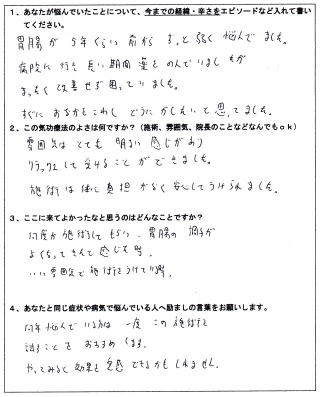 1、あなたが悩んでいたことについて、今までの経緯・辛さをエピソードなど入れて書い
てください。
胃腸が5年くらい前からずっと弱く悩んでました。
病院に行き長い期間薬をのんでいましたが
まったく改善せず困っていました。
すぐにおなかをこわしどうにかしたいと思ってました。
2、この気功療法のよさは何ですか?(施術、雰囲気、院長のことなどなんでもok)
雰囲気はとても明るい感じがあり
リラックスして受けることができました。
施術は体に負担がなく安心してうけられました。
3、ここに来てよかったなと思うのはどんなことですか?
何度か施術してもらい、胃腸の調子が
よくなってきたと感じた時。
いい雰囲気で施術をうけている時。
4、あなたと同じ症状や病気で悩んでいる人へ励ましの言葉をお願いします。
何年悩んでいる方は一度この施術を
試すことをおすすめします。
やってみると効果を実感できるかもしれません。